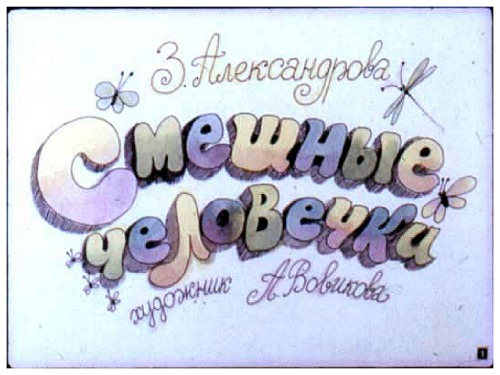 З. Александрова
Смешные
человечки
художник А. Вовикова
1